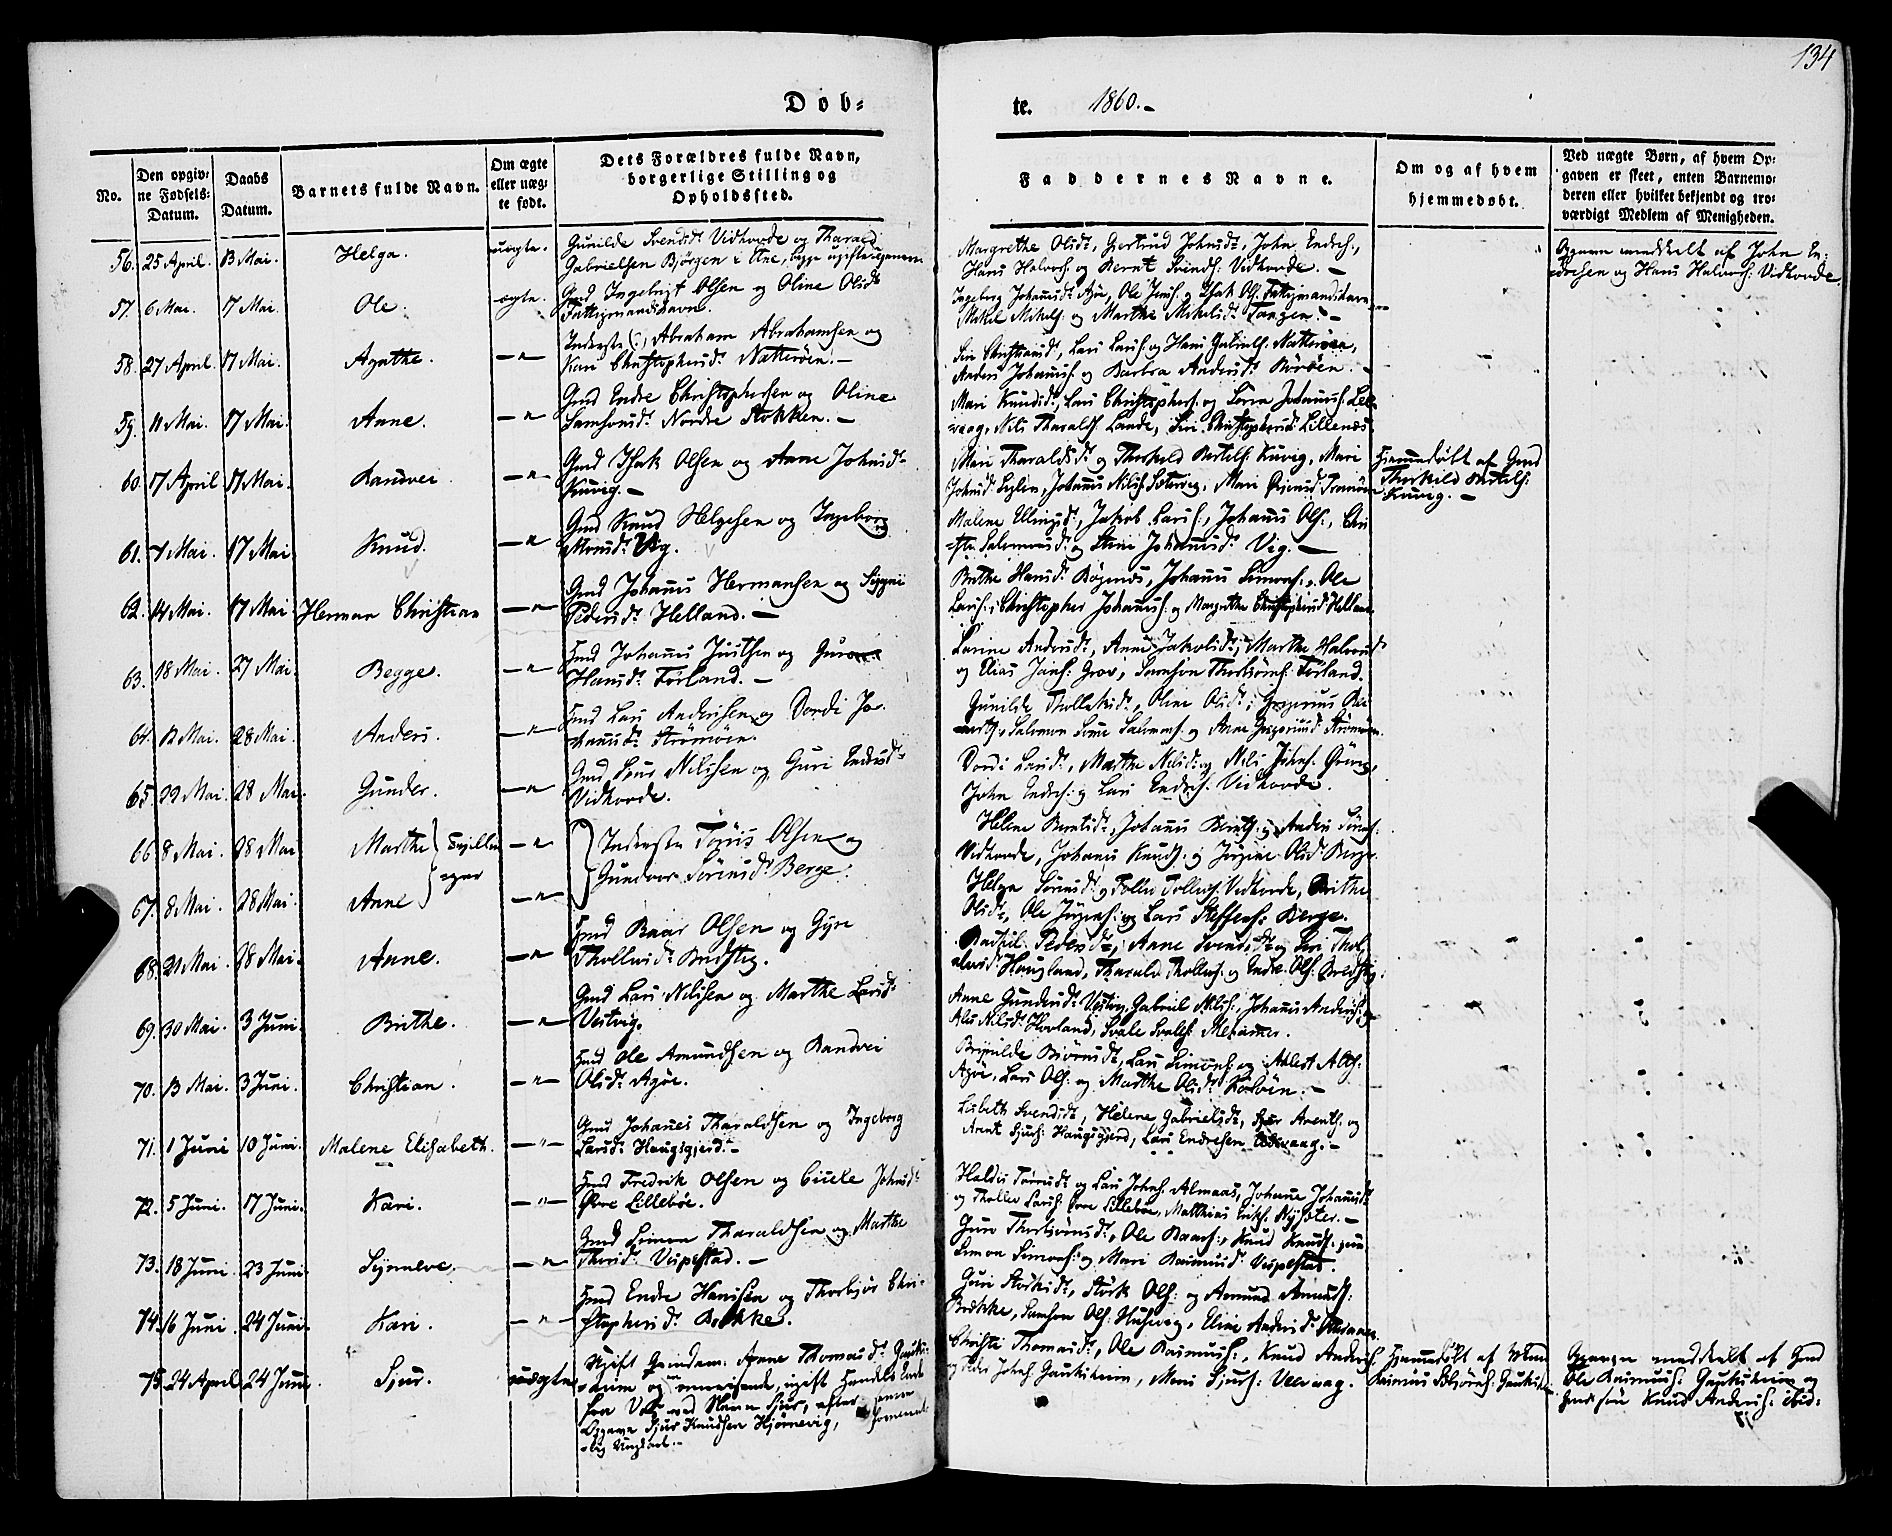 134
Dob=
te. 1860.-
No.
Den opgiv=
ne Fødsels=
Datum.
Daabs
Datum.
Barnets fulde Navn.
Om ægte
eller uæg=
te født.
Dets Forældres fulde Navn,
borgerlige Stilling og
Opholdssted.
Faddernes Navne.
Om og af hvem
hjemmedøbt.
Ved uægte Børn, af hvem Op=
gaven er skeet, enten Barnemo=
deren eller hvilket bekjendt og tro=
værdigt Medlem af Menigheden.
56. 25 April. 13 Mai. Helga. uægte. Gunilde Svendsdt Vidhovde og Tharald
Gabrielsen Bjørgen i Etne, begge ugifte
Margrethe Olsdt, Gjertrud Johnsdt, John Endres:,
Hans Halvors: og Bernt Svends: Vidhovde. -
Opgaven meddelt af John En-
dresen og Hans Halvors: Vidhovde.
57. 6 Mai. 17 Mai. Ole. ægte. Gmd Ingebrigt Olsen og Oline Olsdt
Fattigmandshavn.
Ingeborg Johannesdt Agøe, Ole Jens: og Isak Ols: Fattigmandshavn
Mikel Mikels: og Marthe Mikelsdt Tangen. -
58. 27 April. 17 Mai. Agathe. -"- Inderste Abraham Abrahamsen og
Kari Christophersdt Natterøen. -
Siri Christiansdt, Lars Lars: og Hans Gabriels: Natterøen,
Anders Johannes: og Barbra Andersdt Børøen. -
59. 11 Mai. 17 Mai. Anne. -"- Gmd Endre Christophersen og Oline
Samsonsdt Nordre Stokken. -
Mari Knudsdt, Lars Christophers: og Johannes:
vaag, Nils Tharalds: Lande, Siri Christophersdt Lillenes
60 17 April 17 Mai. Randvei. -"- Gmd Isak Olsen og Anne Johnsdt
Kuvig. -
Mari Tharaldsdt og Thorkild Bertels: Kuvig, Mari
Johnsdt, Johannes Nils:
Hjemmedøbt af Gmd
Thorkild Bertels:
Kuvig. -
61. 7 Mai. 17 Mai Knud. -"- Gmd Knud Helgesen og Ingeborg
Monsdt Vig.
Malene, Jakob Lars:, Johannes Ols:, Chri
stn Salomonsdt og Stine Johannesdt Vig. -
62. 14 Mai. 17 Mai Herman Christian -"- Gmd Johannes Hermansen og Siggni
Pedersdt Helland. -
Brithe Hansdt Røgenes, Johannes Simons:, Ole
Lars:, Christopher Johannes: og Margrethe Christophersdt Helland
63. 18 Mai. 27 Mai. Begge. -"- Gmd Johannes Justsen og Guro
Hansdt Førland. -
Larine Andersdt, Anne Jakobsdt, Marthe Halvorsdt
og Elias Jans: Grov, Samson Thorbjørns: Førland.
64. 12 Mai. 28 Mai. Anders. -"- Gmd Lars Andersen og Dordi Jo-
hannesdt Strømøen.
Gunilde Thollaksdt, Oline Olsdt, Gregorius
Salomon Salomons: og Anne Gregoriusdt Strømøen.
65. 22 Mai. 28 Mai. Gunder. -"- Gmd Sjur Nilssen og Guri Endresdt
Vidhovde.
Dordi Larsdt, Marthe Nilsdt og Nils Johns: Grønvig,
John Endres: og Lars Endres: Vidhovde.
66 8 Mai. 28 Mai Marthe } Tvillin -"-
Inderste Tønis Olsen og
Gundvor Sørensdt Berge.
Helene Berntsdt, Johannes Bernts: og Anders Sørens:
Vidhovde, Johannes Knuds: og Jørgine Olsdt Berge
67. 8 Mai. 28 Mai. Anne } -ger -"-
Helga Sørensdt og Tolleiv Tollevs: Vidhovde, Brithe
Olsdt, Ole Jørgens: og Lars Steffens: Berge.
68. 21 Mai. 28 Mai. Anne. -"- Gmd Baar Olsen og Gyri
Thollevsdt Bredsteg.
Pedersdt, Anne Svendsdt og Siri Thol
levsdt Haugland, Tharald Thollevs: og Endre Ols: Bredsteg.
69. 30 Mai. 3 Juni. Brithe. -"- Gmd Lars Nilssen og Marthe Larsdt
Vestvig.
Anne Gundersdt Vestvig, Gabriel Nils:, Johannes Anders: og
Nilsdt Hovland, Svale Svales: Mehamer.
70. 13 Mai. 3 Juni. Christian. -"- Gmd Ole Amundsen og Randvei
Olsdt Agøe.
Brynilde Bjørnsdt, Lars Simons: og
Agøe, Lars Ols: og Marthe Olsdt Koløen. -
71. 1 Juni 10 Juni. Malene Elisabeth. -"- Gmd Johannes Tharaldsen og Ingeborg
Larsdt Haugsgjerd. -
Lisbeth Svendsdt, Helene Gabrielsdt, Sjur Arents: og
Arent Sjurs: Haugsgjerd, Lars Endresen -
72. 5 Juni. 17 Juni. Kari. -"- Gmd Fredrik Olsen og Cicele Johnsdt
Øvre Lillebøe.
Haldis Tørresdt og Lars Johns: Almaas, Johanne Johannesdt
og Tholler Lars: øvre Lillebøe, Matthias Eriks: Rydster. -
73. 18 Juni. 23 Juni. Synneve. -"- Gmd Simon Tharaldsen og Marthe
Thorsdt Vespestad. -
Guro Thorbjørnsdt, Ole Baars:, Knud Knuds: jun
Simon Simons: og Mari Rasmusdt Vespestad.
74. 16 Juni. 24 Juni. Kari. -"- Gmd Endre Hansen og Thorbjør Chri-
stophersdt Brække.
Guri Størksdt, Størk Ols: og Amund Amunds:
Brække, Samson Ols: Huhsvig, Eline Andersdt
75. 24 April 24 Juni. Sjur. uægte Ugift Anne Thomasdt Gauks-
heim og omreisende, ugift Handels
fra Vos ved Navn Sjur, efter
Opgave Sjur Knudsen Hjørnevig,
Christi Thomasdt, Ole Rasmus:, Knud Anders:
og Johns: Gauksheim, Mons Sjurs: Vaag.
Hjemmedøbt af
Rasmus Gauksh
Opgaven meddelt af Gmd
Ole Rasmus: Gauksheim og
Gmdsøn Knud Anders: ibid: